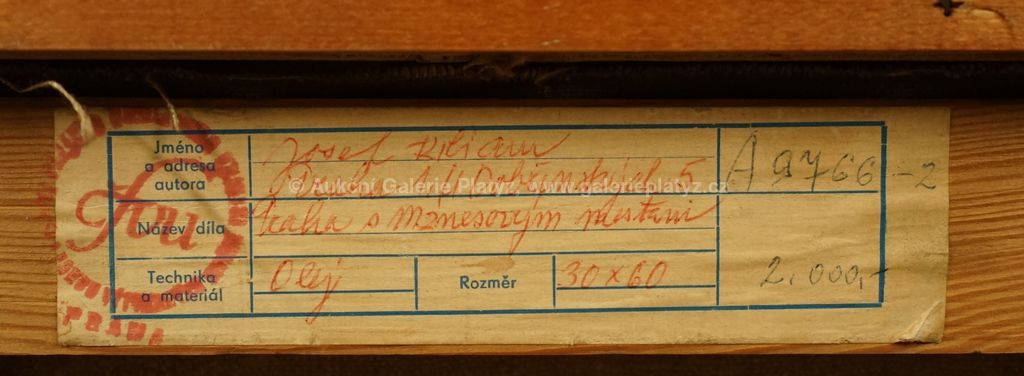 Jméno
a adresa
autora
Josef Kilian
Praha 1, U Dobřenských 5
A 9766-2
© Aukční Galerie Platýz, www.galerieplatyz.cz
Název díla
Praha s Mánesovým mostem
Technika
a materiál
Olej
Rozměr
30x60
2.000,-